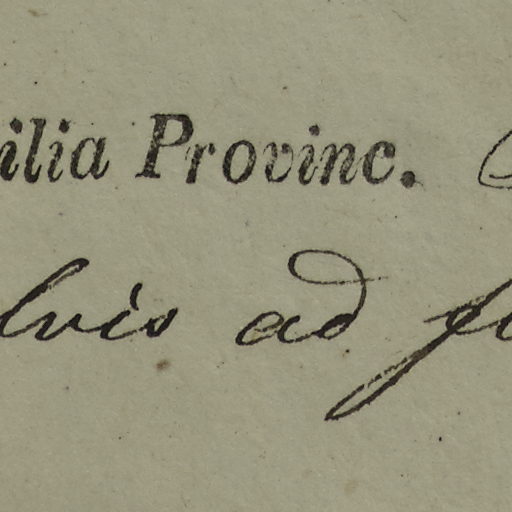 ilia Provinc.
lvis ad